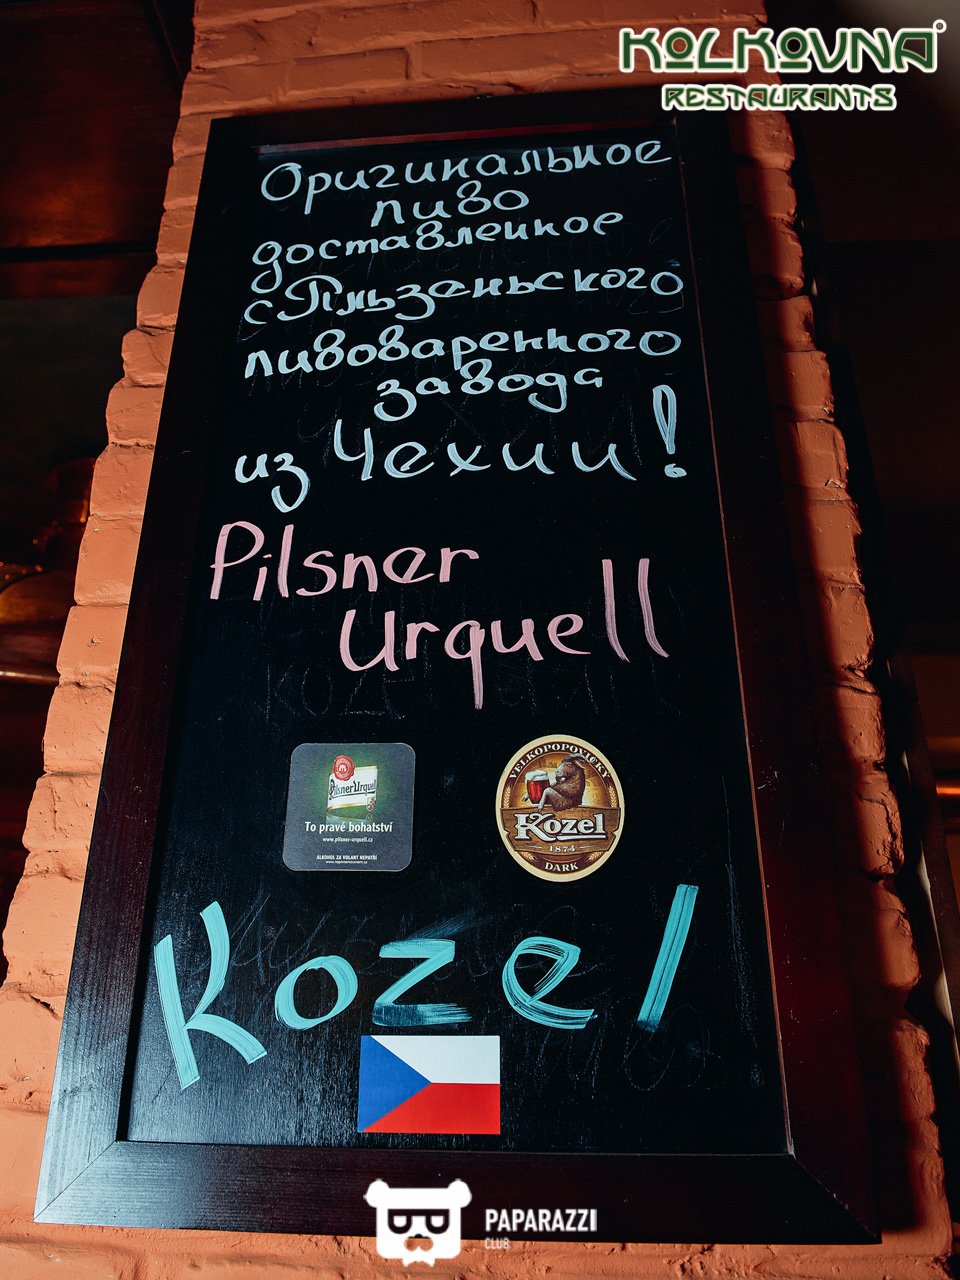 KOLKOVNA
RESTAURANTS
Оригинальное
пиво
доставленное
с Пльзеньского
пивоваренного
завода
из Чехии!
Pilsner
Urquell
Pilsner Urquell
To pravé bohatství
www.pilsner-urquell.cz
ALKOHOL ZA VOLANT NEPATŘÍ
www.napivosrozumem.cz
VELKOPOPOVICKÝ
Kozel
1874
DARK
Kozel
PAPARAZZI
CLUB